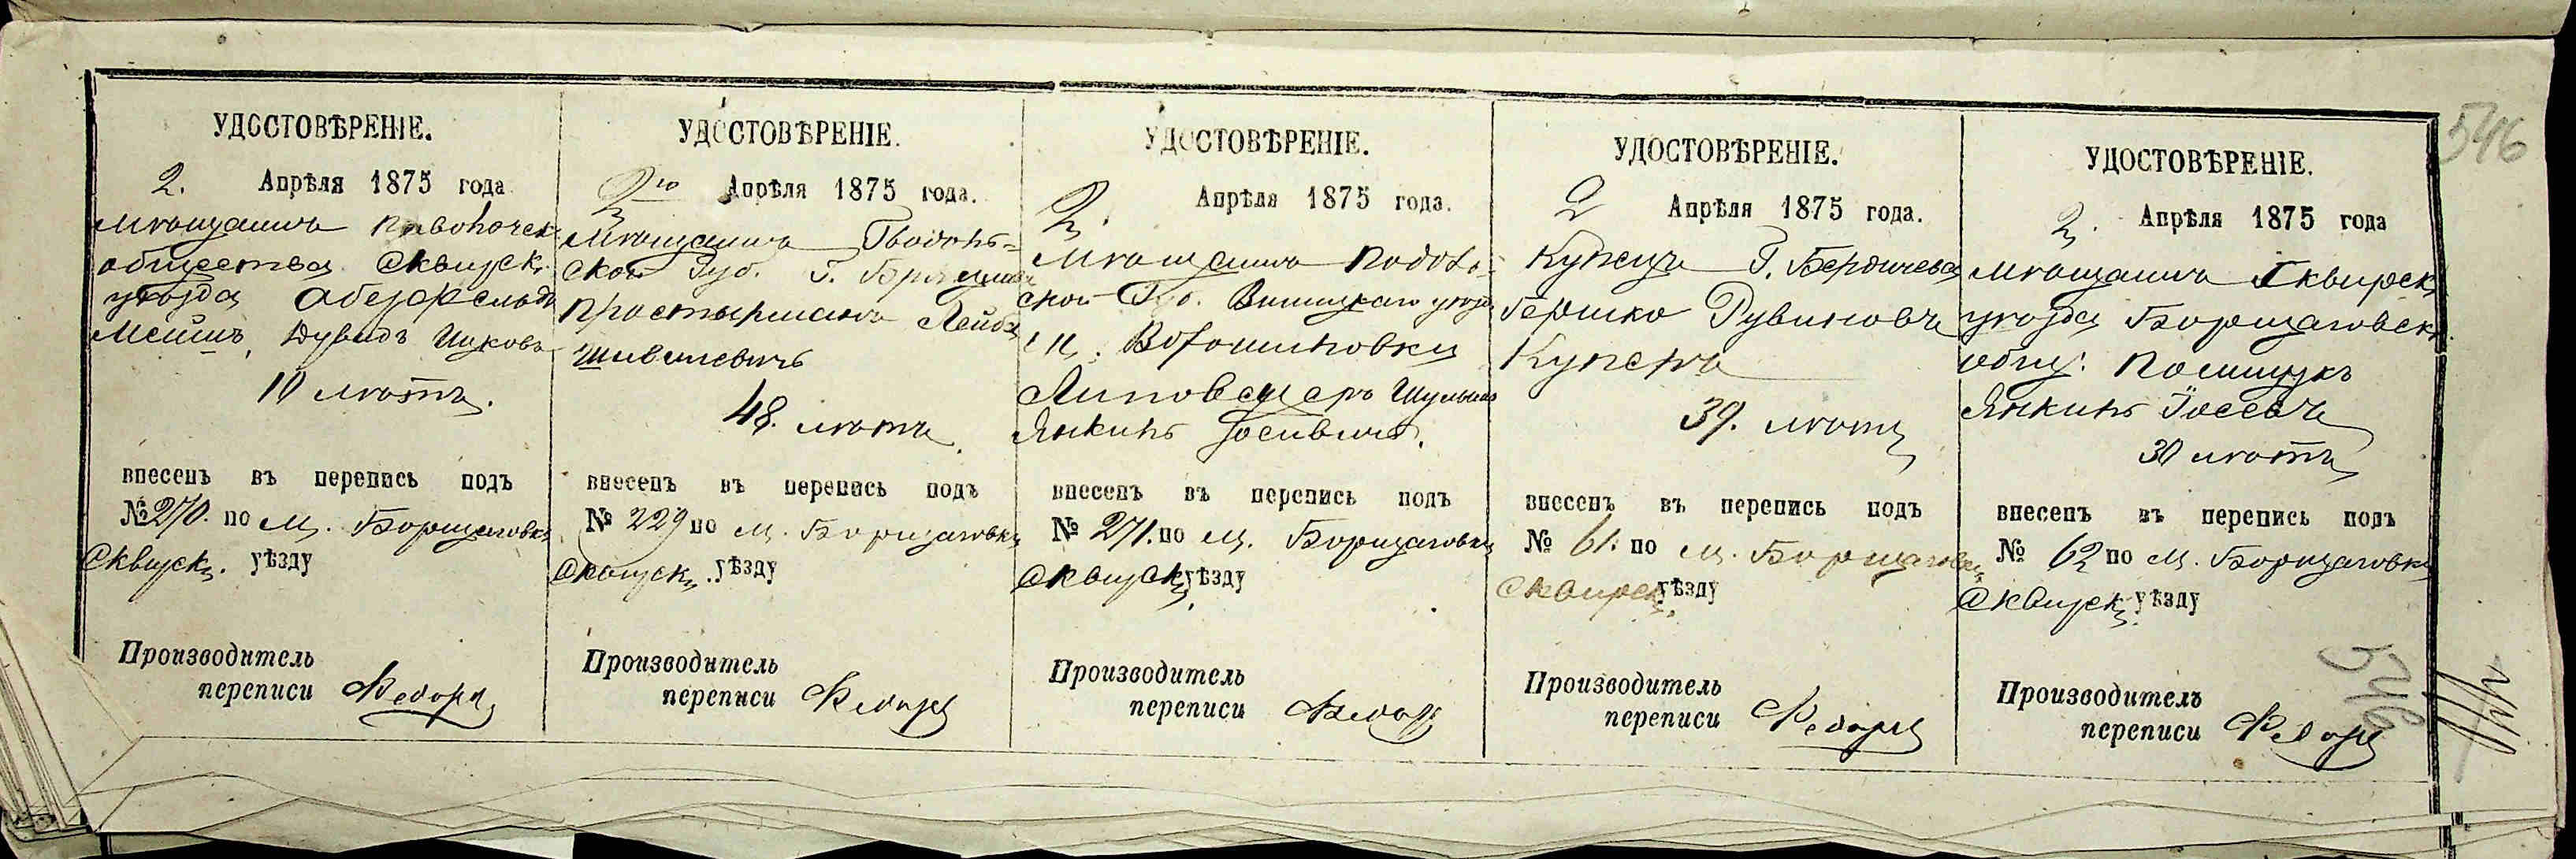 546
УДОСТОВѢРЕНІЕ.
2. Апрѣля 1875 года
Мѣщанинъ Паволочск.
общества Сквирск.
уѣзда
Дувидъ Ицковъ
10 лѣтъ.
внесенъ въ перепись подъ
№ 270. по м. Борщаговкѣ
Сквирск. уѣзду
Производитель
переписи
УДОСТОВѢРЕНІЕ.
2го Апрѣля 1875 года.
Мѣщанинъ
ской Губ. Г.
Лейба
48. лѣтъ.
внесенъ въ перепись подъ
№ 229 по м. Борщаговкѣ
Сквирск. уѣзду
Производитель
переписи
УДОСТОВѢРЕНІЕ.
2. Апрѣля 1875 года.
Мѣщанинъ Подоль-
ской Губ. Винницкаго уѣзда
м. Вороншиловки
Липовецкеръ Шульимъ
Янкинъ Йосивичъ.
внесенъ въ перепись подъ
№ 271. по м. Борщаговкѣ
Сквирск. уѣзду
Производитель
переписи
УДОСТОВѢРЕНІЕ.
2 Апрѣля 1875 года.
Купецъ Г. Бердичева
Гершко Рувиновъ
Куперъ
39. лѣтъ
внесенъ въ перепись подъ
№ 61. по м. Борщаговкѣ
Сквирск. уѣзду
Производитель
переписи
УДОСТОВѢРЕНІЕ.
2. Апрѣля 1875 года
Мѣщанинъ Сквирск.
уѣзда Борщаговск.
общ: Полищукъ
Янкинъ Іосевъ
30 лѣтъ
внесенъ въ перепись подъ
№ 62 по м. Борщаговкѣ
Сквирск. уѣзду
Производитель
переписи
546